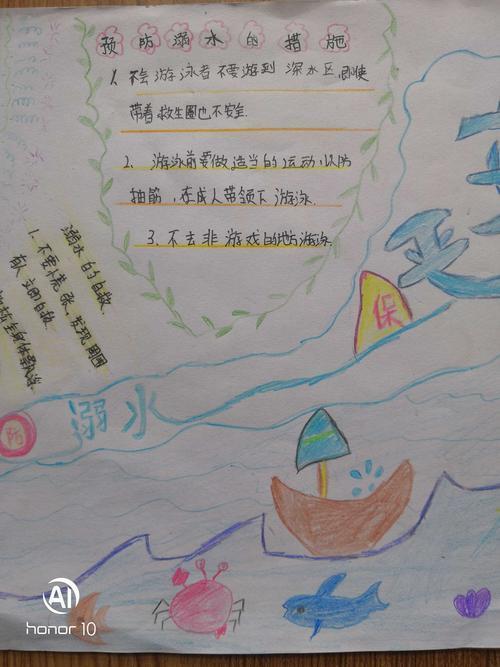 预防溺水的措施
1、不会游泳者不要游到深水区,即使
带着救生圈也不安全.
2、游泳前要做适当的运动,以防
抽筋,在成人带领下游泳.
3、不去非游戏的地方游泳
溺水的自救.
1、不要慌张,发现周围
有人
保
防
溺水
AI
honor 10